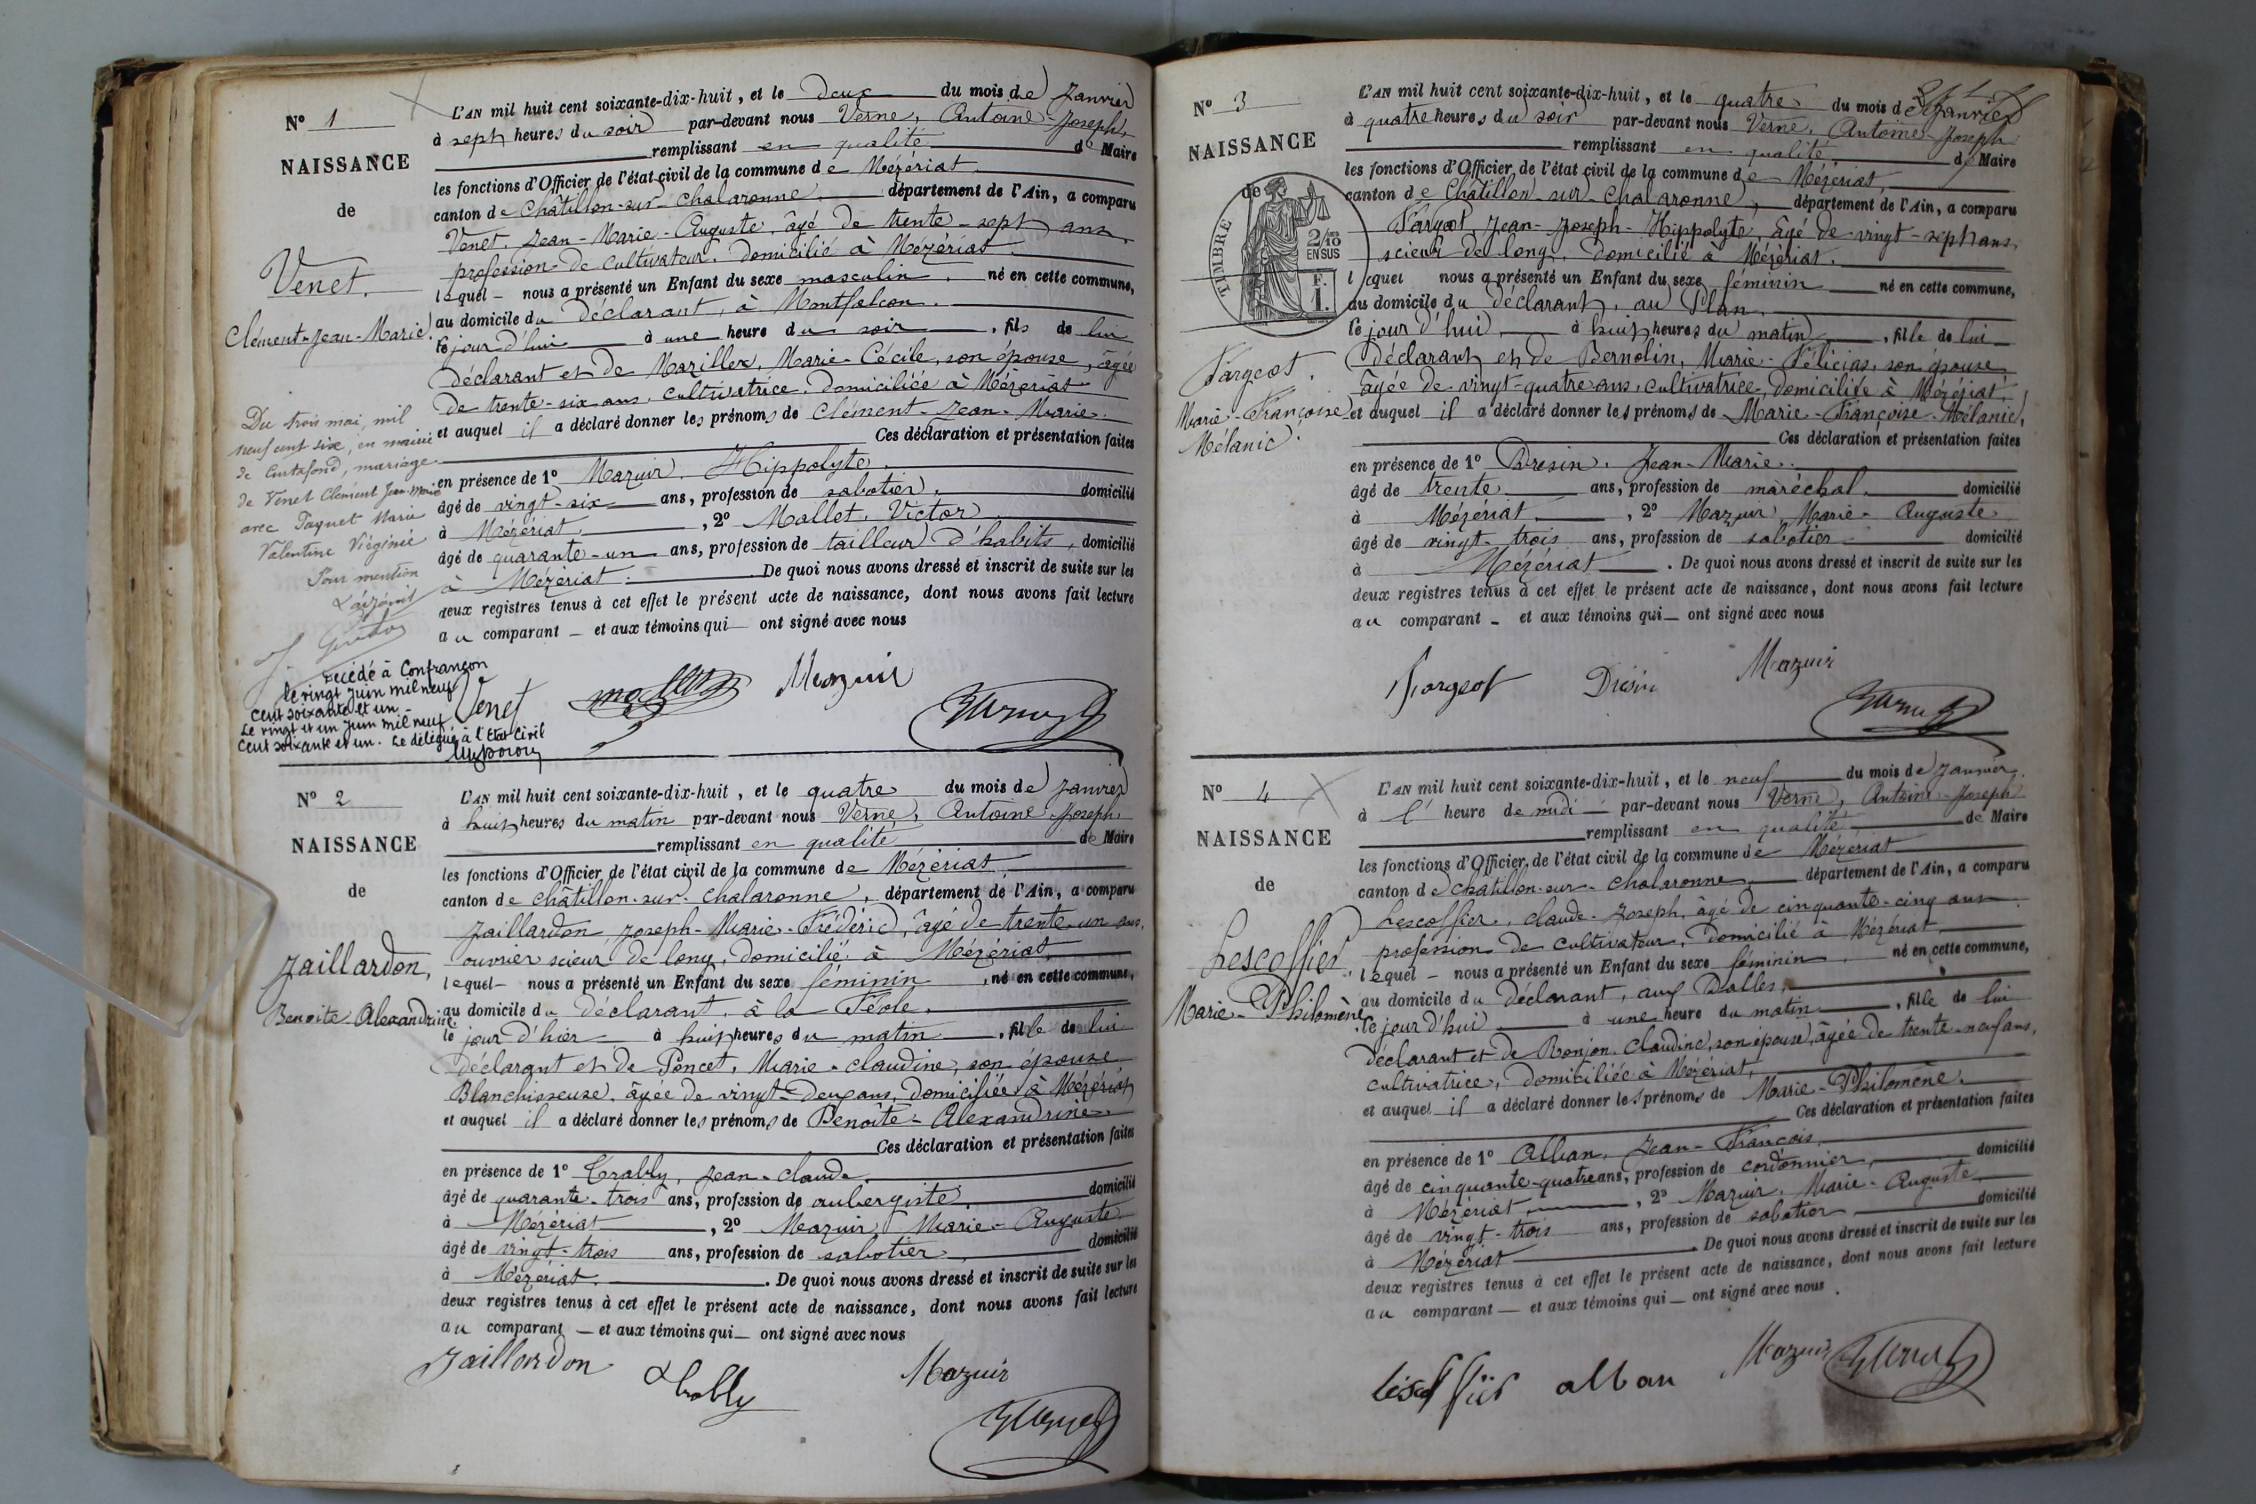 N° 1
NAISSANCE
de
Venet,
Clément-Jean-Marie.
Du trois mai, mil
neuf cent six, en mairie
de Curtafond, mariage
de Venet Clément Jean-Marie
avec Paquet Marie
Valentine Virginie
Pour mention
décédé à Confrançon
le vingt juin mil neuf
cent soixante et un -
Le vingt et un juin mil neuf
cent soixante et un. Le délégué à l'Etat Civil
L'AN mil huit cent soixante-dix-huit, et le deux du mois de Janvier
à sept heures du soir par-devant nous Verne, Antoine-Joseph,
remplissant en qualité de Maire
les fonctions d'Officier de l'état civil de la commune de Mézériat
canton de Châtillon-sur-Chalaronne, département de l'Ain, a comparu
Venet, Jean-Marie-Auguste, âgé de trente-sept ans,
profession de cultivateur, domicilié à Mézériat
lequel nous a présenté un Enfant du sexe masculin né en cette commune,
au domicile du déclarant, à Montfalcon.
le jour d'hui à une heure du soir, fils de lui
déclarant et de Mazillex, Marie-Cécile, son épouse, âgée
de trente-six ans, cultivatrice, domiciliée à Mézériat
et auquel il a déclaré donner les prénoms de Clément-Jean-Marie.
Ces déclaration et présentation faites
en présence de 1° Mazuir, Hippolyte,
âgé de vingt-six ans, profession de sabotier, domicilié
à Mézériat, 2° Mallet, Victor
âgé de quarante-un ans, profession de tailleur d'habits, domicilié
à Mézériat. De quoi nous avons dressé et inscrit de suite sur les
deux registres tenus à cet effet le présent acte de naissance, dont nous avons fait lecture
au comparant - et aux témoins qui - ont signé avec nous
Venet mallet Mazuir Verne
N° 2
NAISSANCE
de
Jaillardon,
Benoite-Alexandrine.
L'AN mil huit cent soixante-dix-huit, et le quatre du mois de Janvier
à huit heures du matin par-devant nous Verne, Antoine-Joseph,
remplissant en qualité de Maire
les fonctions d'Officier de l'état civil de la commune de Mézériat
canton de Châtillon-sur-Chalaronne, département de l'Ain, a comparu
Jaillardon, Joseph-Marie-Frédéric, âgé de trente-un ans,
ouvrier scieur de long, domicilié à Mézériat,
lequel nous a présenté un Enfant du sexe féminin, né en cette commune,
au domicile du déclarant, à la Féole,
le jour d'hier à huit heures du matin, fille de lui
déclarant et de Poncet, Marie-Claudine, son épouse
Blanchisseuse, âgée de vingt-deux ans, domiciliée à Mézériat
et auquel il a déclaré donner les prénoms de Benoîte-Alexandrine.
Ces déclaration et présentation faites
en présence de 1° Trably, Jean-Claude,
âgé de quarante-trois ans, profession de aubergiste, domicilié
à Mézériat, 2° Mazuir, Marie-Auguste
âgé de vingt-trois ans, profession de sabotier, domicilié
à Mézériat. De quoi nous avons dressé et inscrit de suite sur les
deux registres tenus à cet effet le présent acte de naissance, dont nous avons fait lecture
au comparant - et aux témoins qui - ont signé avec nous
Jaillardon Trably Mazuir
Verne
N° 3
NAISSANCE
de
TIMBRE
2/10 EN SUS
F. 1.
Fargeot,
Marie-Françoise
Mélanie.
L'AN mil huit cent soixante-dix-huit, et le quatre du mois de Janvier
à quatre heures du soir par-devant nous Verne, Antoine-Joseph
remplissant en qualité de Maire
les fonctions d'Officier de l'état civil de la commune de Mézériat,
canton de Châtillon-sur-Chalaronne, département de l'Ain, a comparu
Fargeot, Jean-Joseph-Hippolyte, âgé de vingt-sept ans,
scieur de long, domicilié à Mézériat.
lequel nous a présenté un Enfant du sexe féminin né en cette commune,
au domicile du déclarant, au Plan,
le jour d'hui, à huit heures du matin, fille de lui
déclarant et de Bernolin, Marie-Félicias, son épouse,
âgée de vingt-quatre ans, cultivatrice, domiciliée à Mézériat,
et auquel il a déclaré donner les prénoms de Marie-Françoise-Mélanie,
Ces déclaration et présentation faites
en présence de 1° Dresin, Jean-Marie.
âgé de trente ans, profession de maréchal, domicilié
à Mézériat, 2° Mazuir Marie-Auguste
âgé de vingt-trois ans, profession de sabotier domicilié
à Mézériat. De quoi nous avons dressé et inscrit de suite sur les
deux registres tenus à cet effet le présent acte de naissance, dont nous avons fait lecture
au comparant - et aux témoins qui - ont signé avec nous
Fargeot Mazuir
Verne
N° 4
NAISSANCE
de
Lescoffier,
Marie-Philomène.
L'AN mil huit cent soixante-dix-huit, et le neuf du mois de Janvier
à l' heure de midi par-devant nous Verne, Antoine-Joseph
remplissant en qualité de Maire
les fonctions d'Officier de l'état civil de la commune de Mézériat
canton de Châtillon-sur-Chalaronne, département de l'Ain, a comparu
Lescoffier, Claude-Joseph, âgé de cinquante-cinq ans
profession de cultivateur, domicilié à Mézériat,
lequel - nous a présenté un Enfant du sexe féminin, né en cette commune,
au domicile du déclarant, aux Dalles,
le jour d'hui à une heure du matin, fille de lui
déclarant et de Ronjon, Claudine, son épouse, âgée de trente-neuf ans,
cultivatrice, domiciliée à Mézériat,
et auquel il a déclaré donner les prénoms de Marie-Philomène.
Ces déclaration et présentation faites
en présence de 1° Alban, Jean-François,
âgé de cinquante-quatre ans, profession de cordonnier, domicilié
à Mézériat, 2° Mazuir, Marie-Auguste
âgé de vingt-trois ans, profession de sabotier domicilié
à Mézériat. De quoi nous avons dressé et inscrit de suite sur les
deux registres tenus à cet effet le présent acte de naissance, dont nous avons fait lecture
au comparant - et aux témoins qui - ont signé avec nous.
Lescoffier alban Mazuir Verne